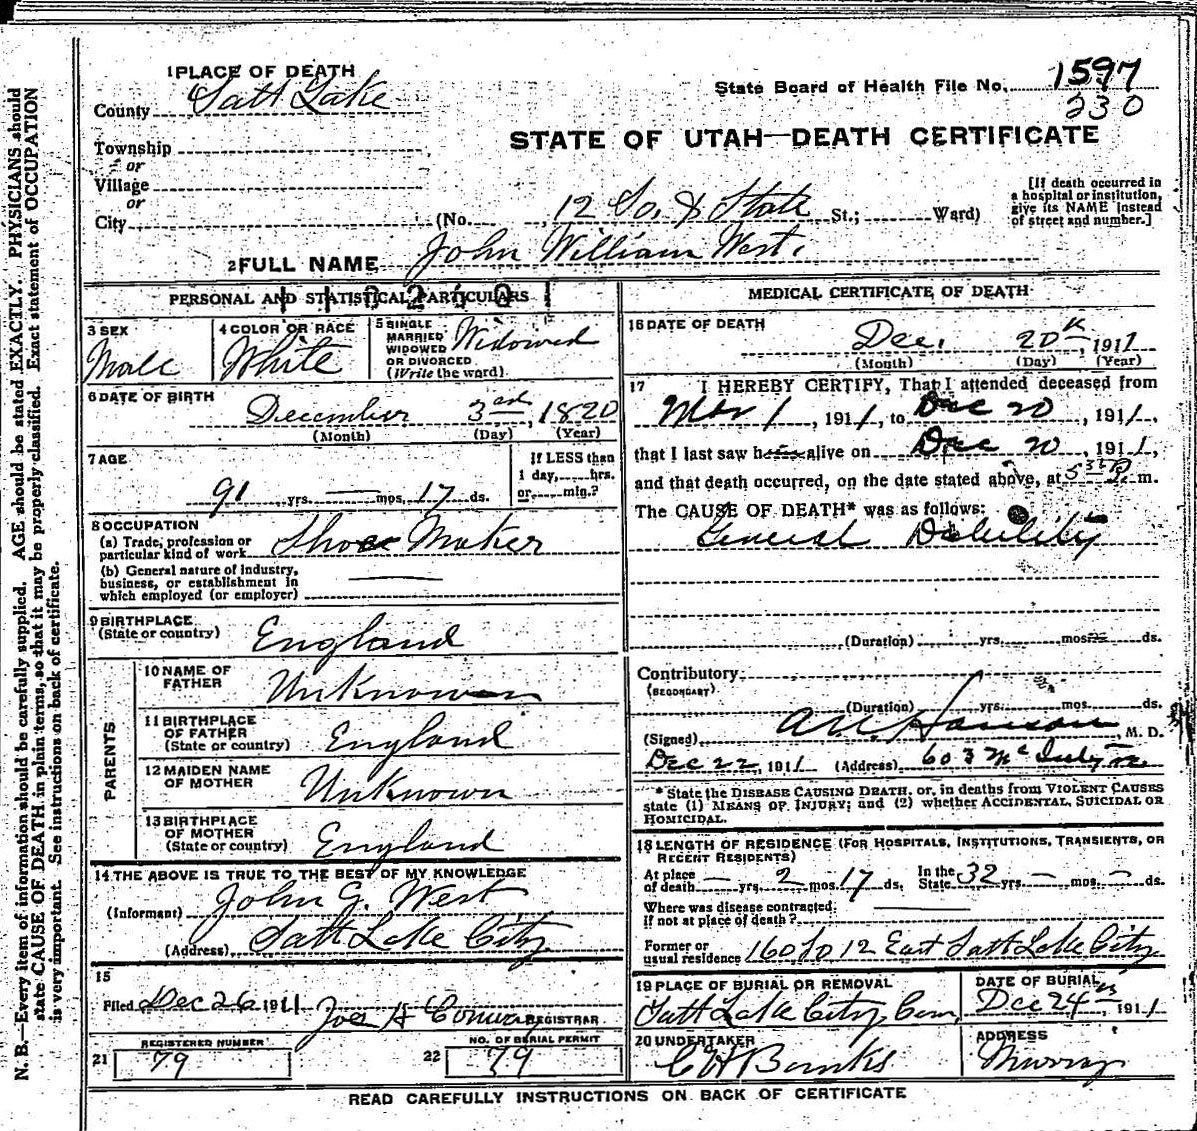 1 PLACE OF DEATH
County Salt Lake
State Board of Health File No. 1597
230
STATE OF UTAH—DEATH CERTIFICATE
Township
or
Village
or
City (No. 12 So. & State St.; Ward)
[If death occurred in a hospital or institution, give its NAME instead of street and number.]
2 FULL NAME John William West.
PERSONAL AND STATISTICAL PARTICULARS
3 SEX
Male
4 COLOR OR RACE
White
5 SINGLE
MARRIED
WIDOWED
OR DIVORCED
(Write the word)
Widowed
6 DATE OF BIRTH
December 3rd, 1820
(Month) (Day) (Year)
7 AGE
91 yrs. — mos. 17 ds.
If LESS than
1 day, hrs.
or min.?
8 OCCUPATION
(a) Trade, profession or
particular kind of work Shoe Maker
(b) General nature of industry,
business, or establishment in
which employed (or employer)
9 BIRTHPLACE
(State or country) England
PARENTS
10 NAME OF
FATHER Unknown
11 BIRTHPLACE
OF FATHER
(State or country) England
12 MAIDEN NAME
OF MOTHER Unknown
13 BIRTHPLACE
OF MOTHER
(State or country) England
14 THE ABOVE IS TRUE TO THE BEST OF MY KNOWLEDGE
(Informant) John G. West
(Address) Salt Lake City
15
Filed Dec 26 1911 Jos H Conway REGISTRAR
21 REGISTERED NUMBER
79
22 NO. OF BURIAL PERMIT
79
MEDICAL CERTIFICATE OF DEATH
16 DATE OF DEATH
Dec. 20th, 1911
(Month) (Day) (Year)
17 I HEREBY CERTIFY, That I attended deceased from
Mar 1, 1911, to Dec 20, 1911,
that I last saw h alive on Dec 20, 1911,
and that death occurred, on the date stated above, at 5 30 P. m.
The CAUSE OF DEATH* was as follows:
General Debility
(Duration) yrs. mos. ds.
Contributory
(SECONDARY)
(Duration) yrs. mos. ds.
(Signed) Hanson, M. D.
Dec 22, 1911 (Address) 603
* State the DISEASE CAUSING DEATH, or, in deaths from VIOLENT CAUSES
state (1) MEANS OF INJURY; and (2) whether ACCIDENTAL, SUICIDAL OR
HOMICIDAL.
18 LENGTH OF RESIDENCE (FOR HOSPITALS, INSTITUTIONS, TRANSIENTS, OR
RECENT RESIDENTS)
At place
of death — yrs. 2 mos. 17 ds.
In the
State 32 yrs. — mos. — ds.
Where was disease contracted,
If not at place of death?
Former or
usual residence 160 So 12 East Salt Lake City
19 PLACE OF BURIAL OR REMOVAL
Salt Lake City Cem,
DATE OF BURIAL
Dec 24th, 1911
20 UNDERTAKER
C H Banks
ADDRESS
Murray
READ CAREFULLY INSTRUCTIONS ON BACK OF CERTIFICATE
N. B.—Every item of information should be carefully supplied. AGE should be stated EXACTLY. PHYSICIANS should
state CAUSE OF DEATH in plain terms, so that it may be properly classified. Exact statement of OCCUPATION
is very important. See instructions on back of certificate.